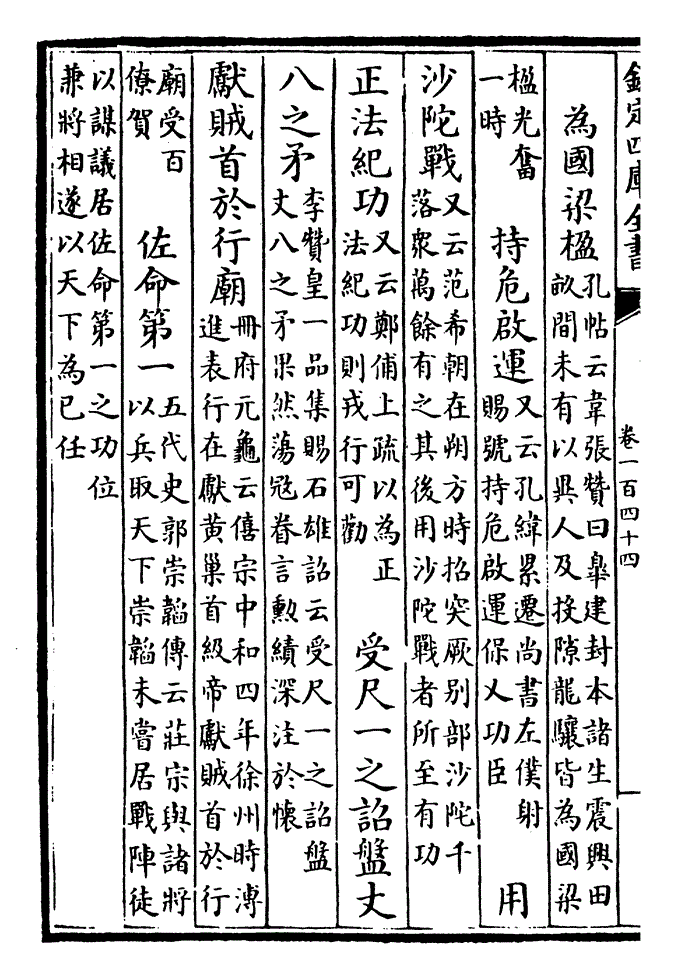 欽定四庫全書
卷一百四十四
為國梁楹孔帖云韋張贊曰皐建封本諸生震興田
畝間未有以異人及投隙龍驤皆為國梁
楹光奮
一時 持危啟運又云孔緯累遷尚書左僕射
賜號持危啟運保乂功臣 用
沙陀戰又云范希朝在朔方時招突厥别部沙陀千
落衆萬餘有之其後用沙陀戰者所至有功
正法紀功又云鄭俌上疏以為正
法紀功則戎行可勸 受尺一之詔盤丈
八之矛李贊皇一品集賜石雄詔云受尺一之詔盤
丈八之矛果然蕩冦眷言勲績深注於懷
獻賊首於行廟冊府元龜云僖宗中和四年徐州時溥
進表行在獻黄巢首級帝獻賊首於行
廟受百
僚賀 佐命第一五代史郭崇韜傳云莊宗與諸將
以兵取天下崇韜未嘗居戰陣徒
以謀議居佐命第一之功位
兼將相遂以天下為已任